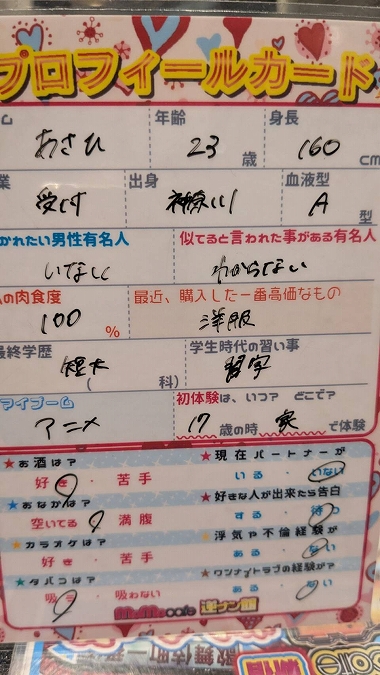 プロフィールカード
ム 年齢 身長
あさひ 23 歳 160 cm
業 出身 血液型
受付 神奈川 A 型
かれたい男性有名人 似てると言われた事がある有名人
いなしし わからない
の肉食度 最近、購入した一番高価なもの
100 % 洋服
最終学歴 学生時代の習い事
短大 ( 科) 習字
マイブーム 初体験は、いつ? どこで?
アニメ 17 歳の時 家 で体験
★お酒は? ★現在パートナーが
好き・苦手 いる・いない
★おなかは? ★好きな人が出来たら告白
空いてる・満腹 する・待つ
★カラオケは? ★浮気や不倫経験が
好き・苦手 ある・ない
★タバコは? ★ワンナイトラブの経験が?
吸う・吸わない ある・ない
MoMo cafe 逆ナン館
歌舞伎町一番